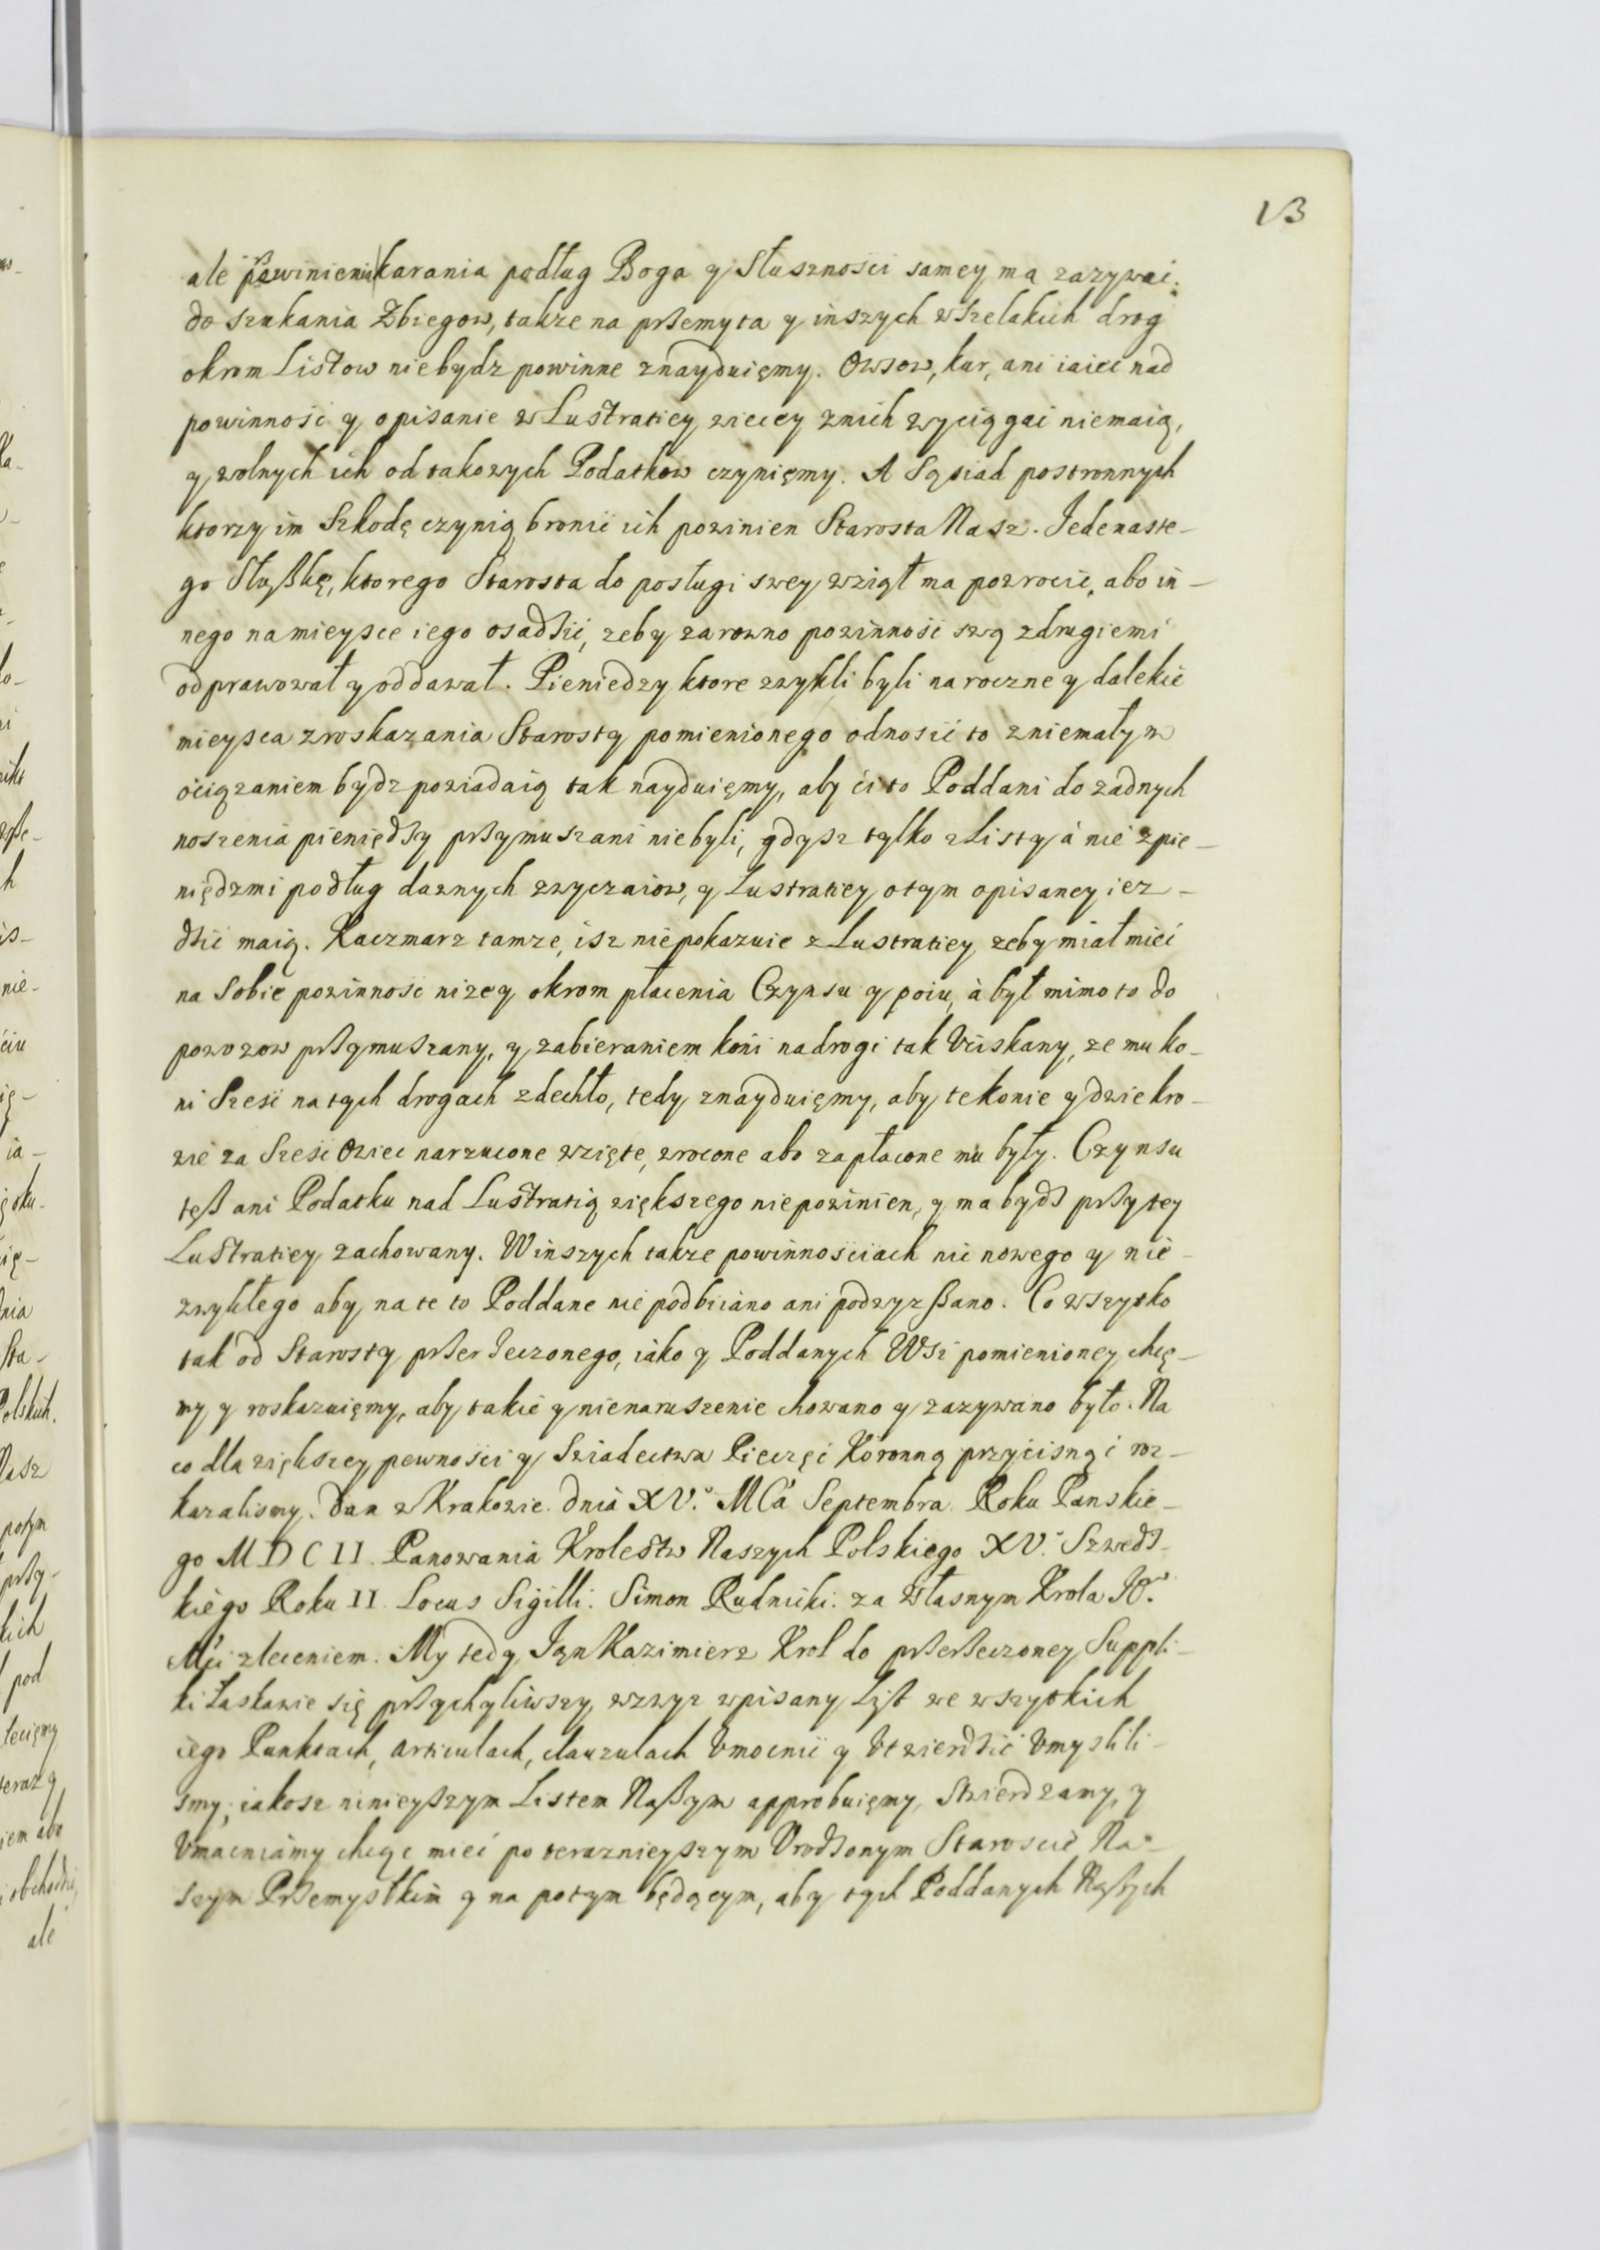 13
ale powinien karania podług Boga y Słuszności samey ma zazywać.
do szukania Zbiegow, takze na przemyta y inszych wszelakich drog
okrom Listow niebydz powinne znayduięmy. Owsow, kur, ani iaiec nad
powinność y opisanie w Lustratiey wiecey znich wyciągać niemaią,
y wolnych ich od takowych Podatkow czynięmy. A Sąsiad postronnych
ktorzy im Szkodę czynią bronić ich powinien Starosta Nasz. Jedenaste-
go Służkę, ktorego Starosta do posługi swey wziął ma powrocić, abo in-
nego namieysce iego osadzić, zeby zarowno powinność swą zdrugiemi
odprawował y oddawał. Pieniedzy ktore zwykli byli naroczne y dalekie
mieysca zroskazania Starosty pomienionego odnosić to zniemałym
ociązaniem bydz powiadaią tak nayduięmy, aby ci to Poddani do zadnych
noszenia pieniędzy przymuszani niebyli, gdysz tylko zListy à nie zpie-
niędzmi podług dawnych zwyczaiow, y Lustratiey otym opisaney iez-
dzić maią. Kaczmarz tamze, isz niepokazuie zLustratiey, zeby miał mieć
na Sobie powinność nizey okrom płacenia Czynsu y poiu, à był mimo to do
powozow przymuszany, y zabieraniem koni nadrogi tak Uciskany, ze mu ko-
ni Szesc natych drogach zdechło, tedy znayduięmy, aby tekonie y dziekro-
wie za Szesc Owiec narzucone wzięte, wrocone abo zapłacone mu były. Czynsu
teß ani Podatku nad Lustratią większego niepowinien, y ma bydz przy tey
Lustratiey zachowany. Winszych takze powinnościach nic nowego y nie-
zwykłego aby na te to Poddane nie podbiiano ani podwyzßano. Co wszytko
tak od Starosty przerzeczonego, iako y Poddanych Wsi pomienioney chcę-
my y roskazuięmy, aby takie y nienaruszenie chowano y zazywano było. Na
co dla większey pewności y Swiadectwa Pieczęć Koronną przycisnąć roz-
kazalismy. Dan w Krakowie dnia XV. MCa Septembra Roku Panskie-
go MDCII. Panowania Krolestw Naszych Polskiego XV. Szwedz-
kiego Roku II Locus Sigilli. Simon Rudnicki. za Własnym Krola JO.
Mci zleceniem. My tedy Jan Kazimierz Krol do przerzeczoney Suppli-
ki Łaskawie się przychyliwszy, wzwyz wpisany List we wszytkich
iego Punktach, articulach, clauzulach Umocnić y Utwierdzić Umyslili-
smy, iakosz ninieyßzym Listem Naßym approbuięmy, Stwierdzamy, y
Umacniamy chcąc mieć po terazniejszym Urodzonym Staroscie Na-
szym Przemyslkim y na potym będącym, aby tych Poddanych Naßych